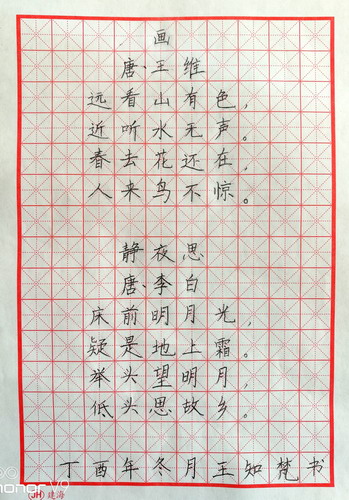 画
唐·王维
远看山有色，
近听水无声。
春去花还在，
人来鸟不惊。
静夜思
唐·李白
床前明月光，
疑是地上霜。
举头望明月，
低头思故乡。
丁酉年冬月王知梵书
honor V9
(JH) 建海